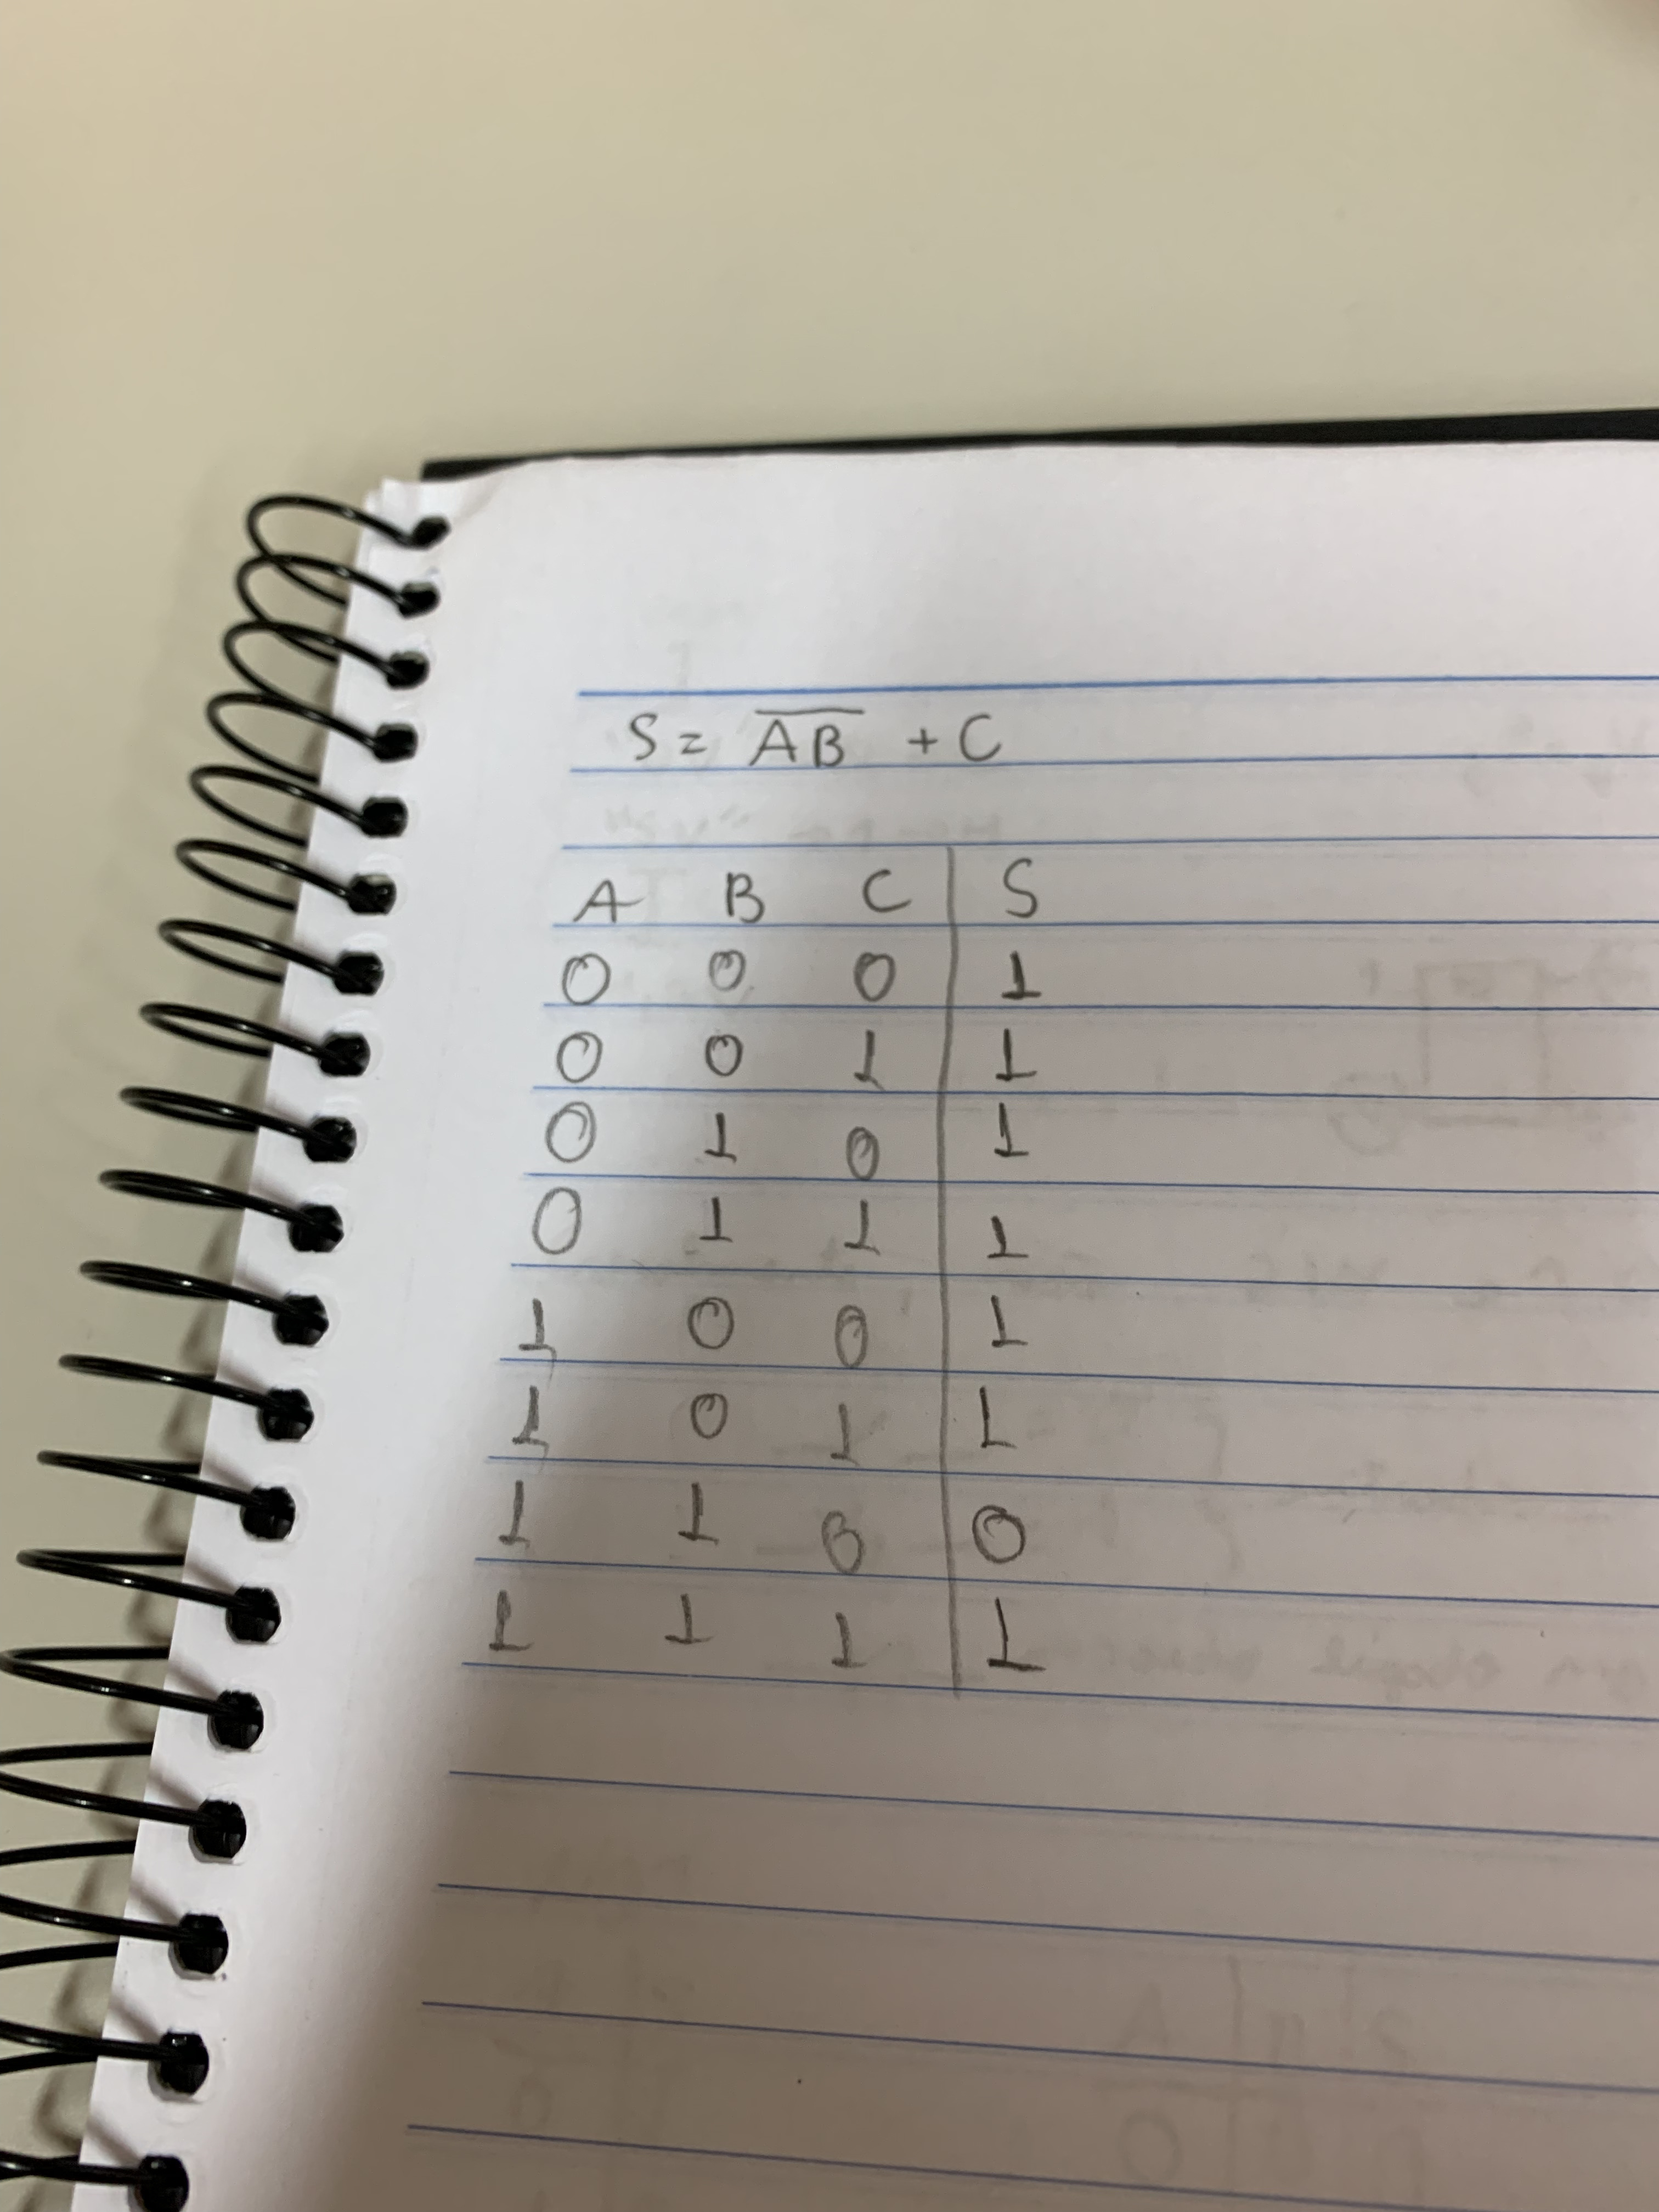 S = \overline{AB} + C
A B C | S
0 0 0 | 1
0 0 1 | 1
0 1 0 | 1
0 1 1 | 1
1 0 0 | 1
1 0 1 | 1
1 1 0 | 0
1 1 1 | 1